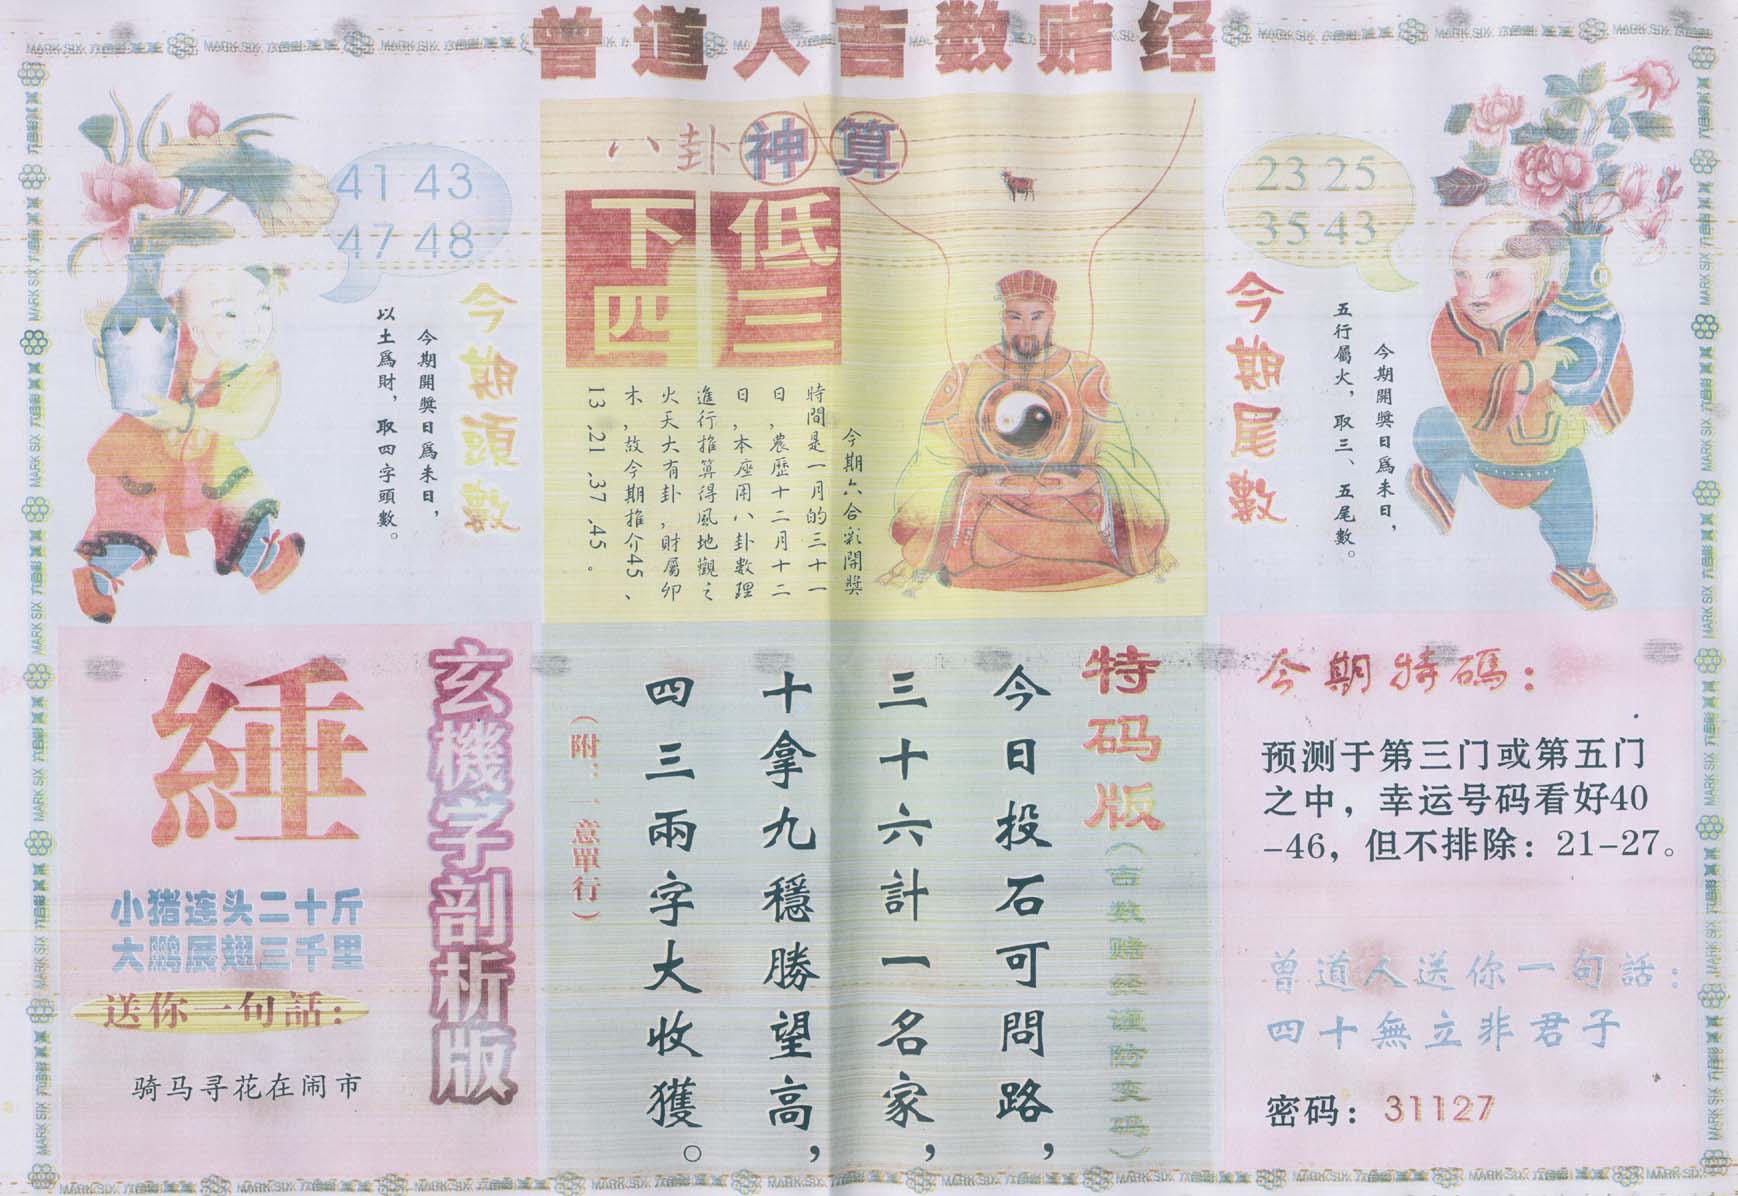 曾道人吉数赌经
41 43
47 48
今期頭數
今期開獎日爲未日，
以土爲財，取四字頭數。
八卦神算
低三
下四
今期六合彩開獎
時間是一月的三十一
日，農歷十二月十二
日，本座用八卦數理
進行推算得風地觀之
火天大有卦，財屬卯
木，故今期推介45、
13、21、37、45。
23 25
35 43
今期尾數
今期開獎日爲未日，
五行屬火，取三、五尾數。
玄機字剖析版
綞
小猪连头二十斤
大鹏展翅三千里
送你一句話：
骑马寻花在闹市
特码版（吉数赌经谨防变码）
今日投石可問路，
三十六計一名家，
十拿九穩勝望高，
四三兩字大收獲。
（附：一意單行）
今期特碼：
预测于第三门或第五门
之中，幸运号码看好40
-46，但不排除：21-27。
曾道人送你一句話：
四十無立非君子
密码：31127